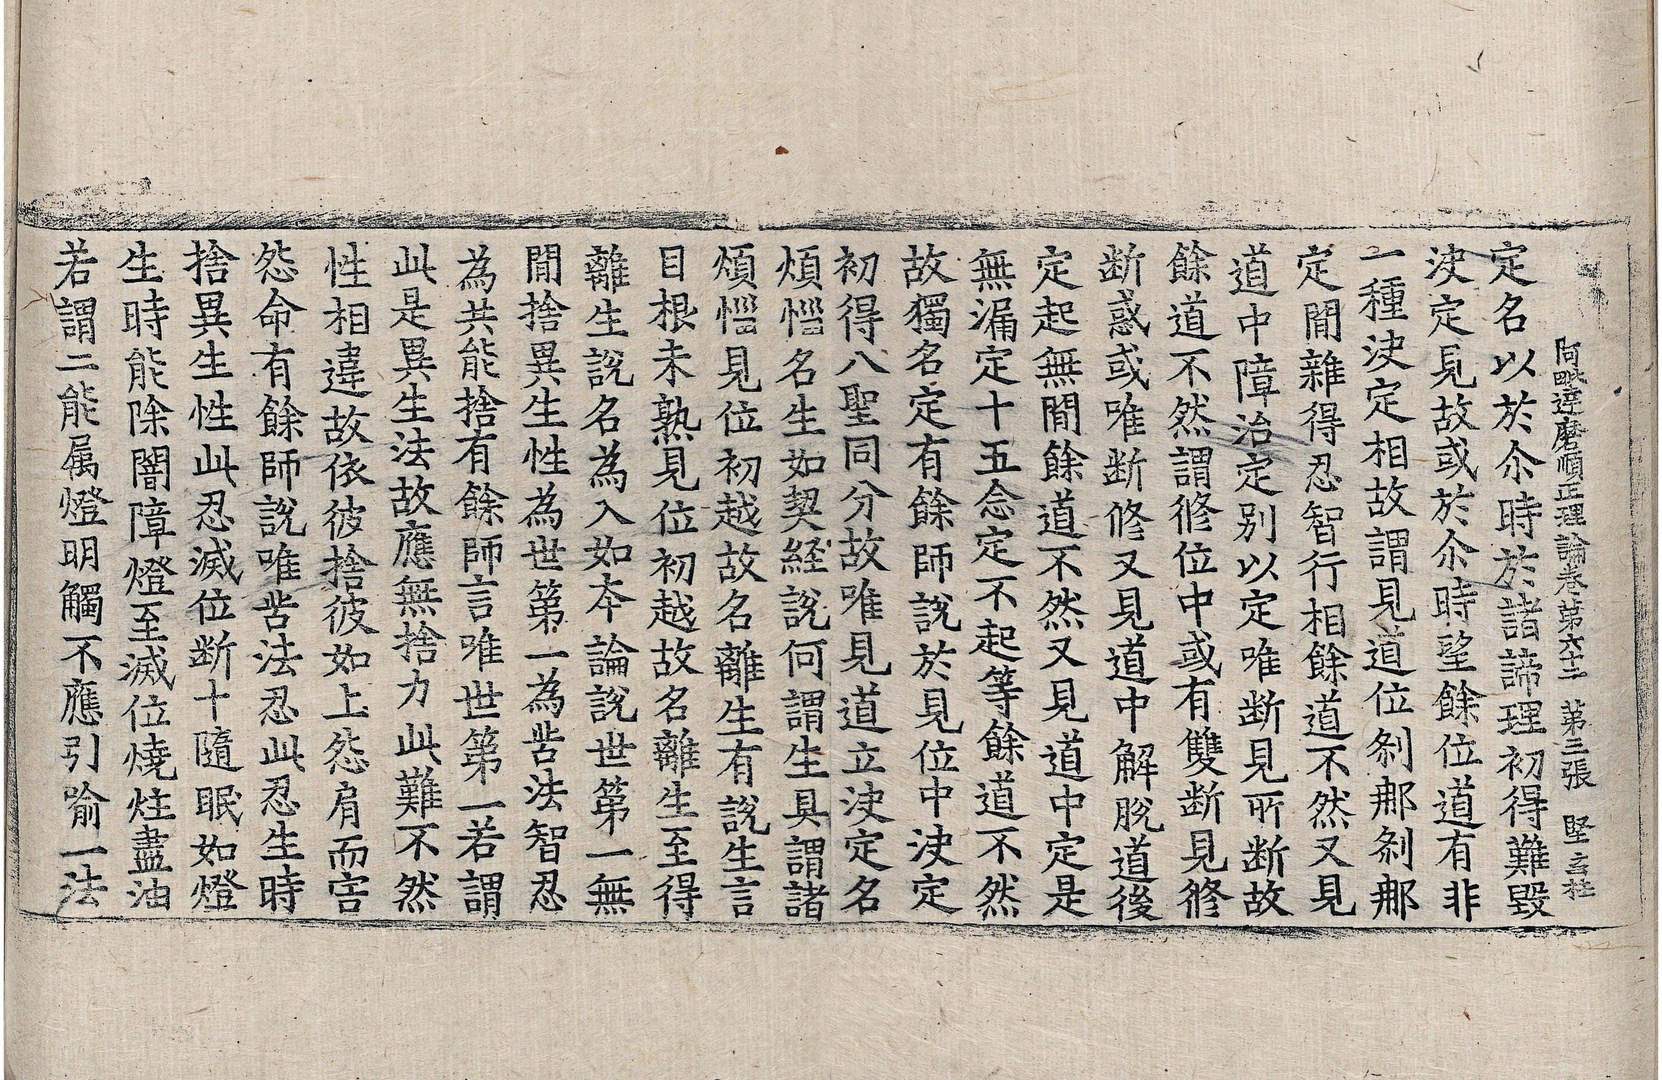 阿毗達磨順正理論卷第六十三 第三張 堅 玄柱
定名以於尒時於諸諦理初得難毀
决定見故或於尒時望餘位道有非
一種决定相故謂見道位刹那刹那
定閒雜得忍智行相餘道不然又見
道中障治定別以定唯斷見所斷故
餘道不然謂修位中或有雙斷見修
断惑或唯断修又見道中解脫道後
定起無閒餘道不然又見道中定是
無漏定十五念定不起等餘道不然
故獨名定有餘師說於見位中决定
初得八聖同分故唯見道立决定名
煩惱名生如契経說何謂生具謂諸
煩惱見位初越故名離生有說生言
目根未熟見位初越故名離生至得
離生說名為入如本論說世第一無
閒捨異生性為世第一為苦法智忍
為共能捨有餘師言唯世第一若謂
此是異生法故應無捨力此難不然
性相違故依彼捨彼如上怨肩而害
怨命有餘師說唯苦法忍此忍生時
捨異生性此忍滅位断十隨眠如燈
生時能除闇障燈至滅位燒炷盡油
若謂二能属燈明觸不應引喻一法